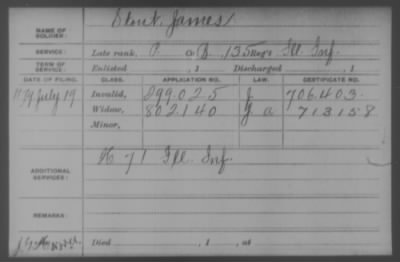 NAME OF SOLDIER: Stout, James
SERVICE: Late rank, P Co. B, 135 Reg't Ill. Inf.
TERM OF SERVICE: Enlisted , 1 Discharged , 1
DATE OF FILING. CLASS. APPLICATION NO. LAW. CERTIFICATE NO.
July 19 Invalid, 899.025 J 706.403.
Widow, 802.140 G a 713158
Minor,
ADDITIONAL SERVICES: K 71 Ill. Inf.
REMARKS:
Died , 1 , at